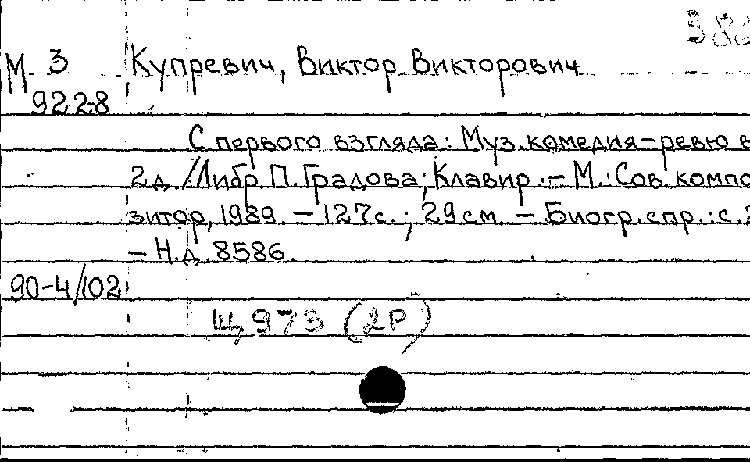 М 3 Купревич, Виктор Викторович
9228
С первого взгляда: Муз. комедия-ревю в
2д. /Либр. П. Градова; Клавир. – М.: Сов. компо
зитор, 1989. – 127с.; 29см. – Биогр. спр.: с.
– Н.д. 8586.
90-4/102
Щ973 (2Р)